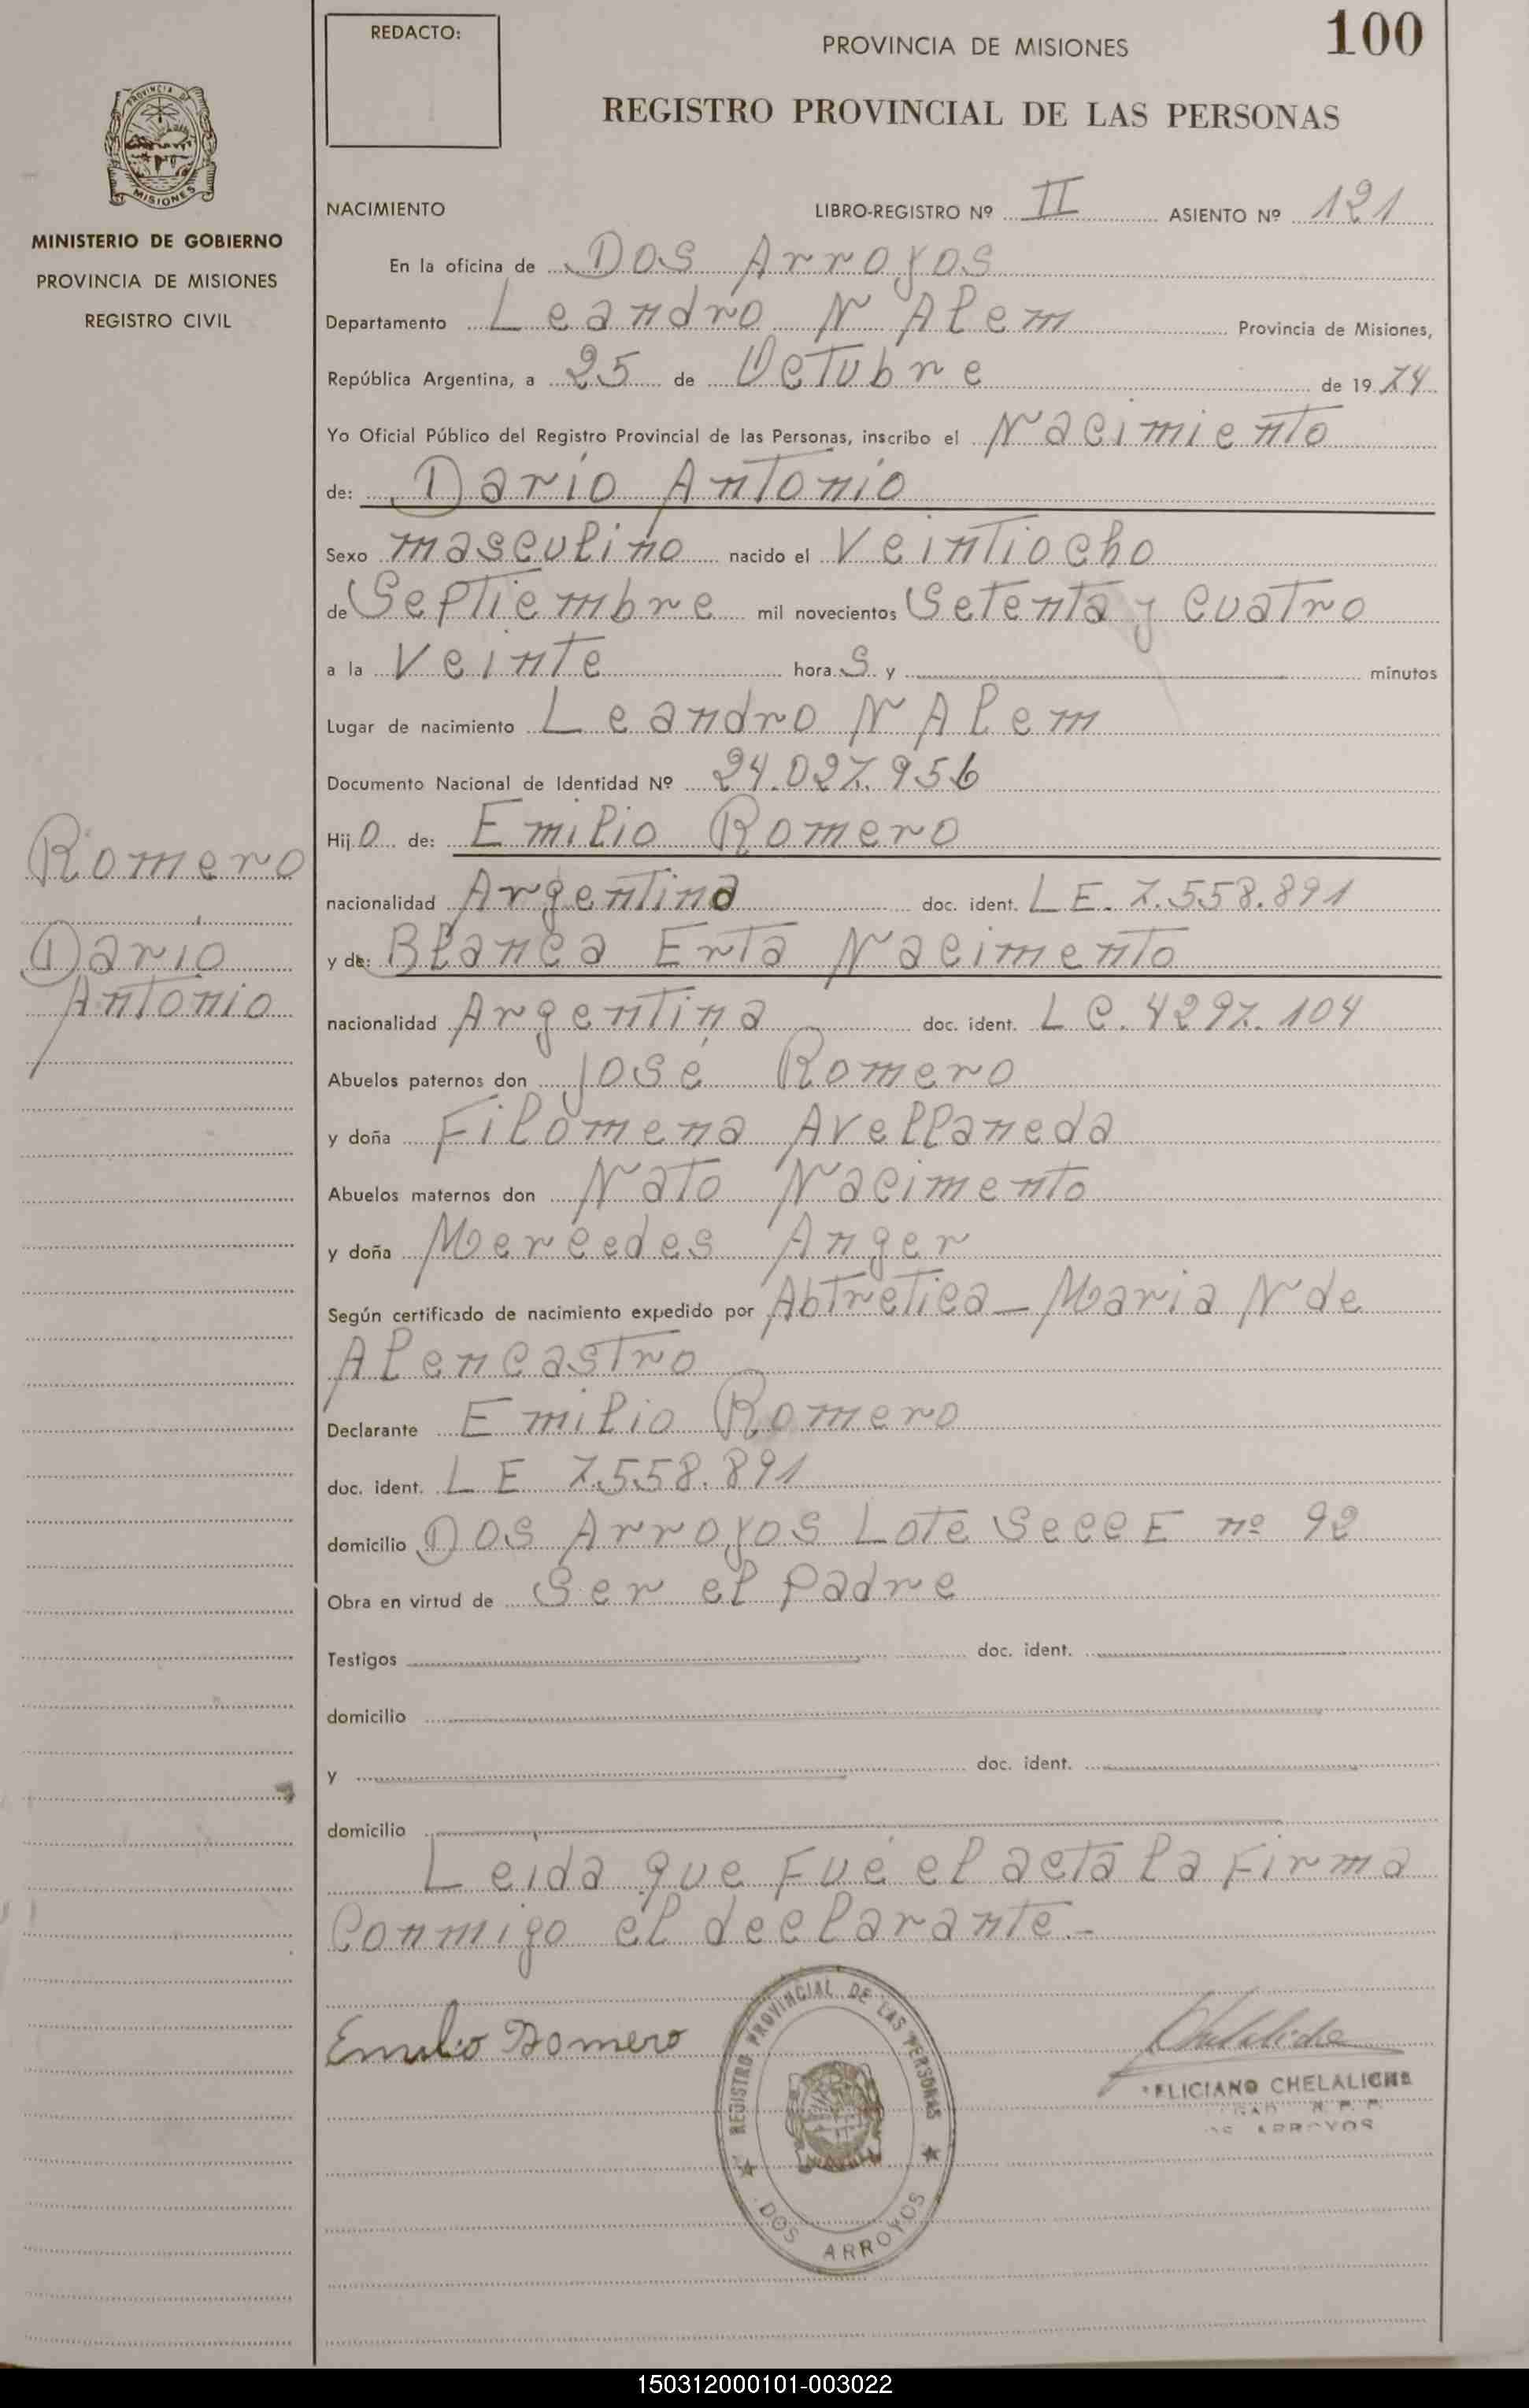 REDACTO:
PROVINCIA DE MISIONES
100
REGISTRO PROVINCIAL DE LAS PERSONAS
PROVINCIA DE
MISIONES
MINISTERIO DE GOBIERNO
PROVINCIA DE MISIONES
REGISTRO CIVIL
NACIMIENTO LIBRO-REGISTRO Nº II ASIENTO Nº 121
En la oficina de Dos Arroyos
Departamento Leandro N Alem Provincia de Misiones,
República Argentina, a 25 de Octubre de 1974
Yo Oficial Público del Registro Provincial de las Personas, inscribo el Nacimiento
de: Darío Antonio
Sexo masculino nacido el Veintiocho
de Septiembre mil novecientos Setenta y cuatro
a la Veinte hora S y minutos
Lugar de nacimiento Leandro N Alem
Documento Nacional de Identidad Nº 24.027.956
Hijo de: Emilio Romero
nacionalidad Argentina doc. ident. L E. 7.558.891
y de: Blanca Erta Nacimento
nacionalidad Argentina doc. ident. L.C. 4297.104
Abuelos paternos don José Romero
y doña Filomena Avellaneda
Abuelos maternos don Nato Nacimento
y doña Mercedes Anger
Según certificado de nacimiento expedido por Abtretica - Maria N de
Alencastro
Declarante Emilio Romero
doc. ident. L E 7.558.891
domicilio Dos Arroyos Lote Secc E nº 92
Obra en virtud de Ser el padre
Testigos doc. ident.
domicilio
y doc. ident.
domicilio
Leida que fué el acta la firma
Conmigo el declarante.-
Romero
Darío
Antonio
Emilio Romero
REGISTRO PROVINCIAL DE LAS PERSONAS
DOS ARROYOS
Chelaliche
FELICIANO CHELALICHE
R. P. P.
ARROYOS
150312000101-003022